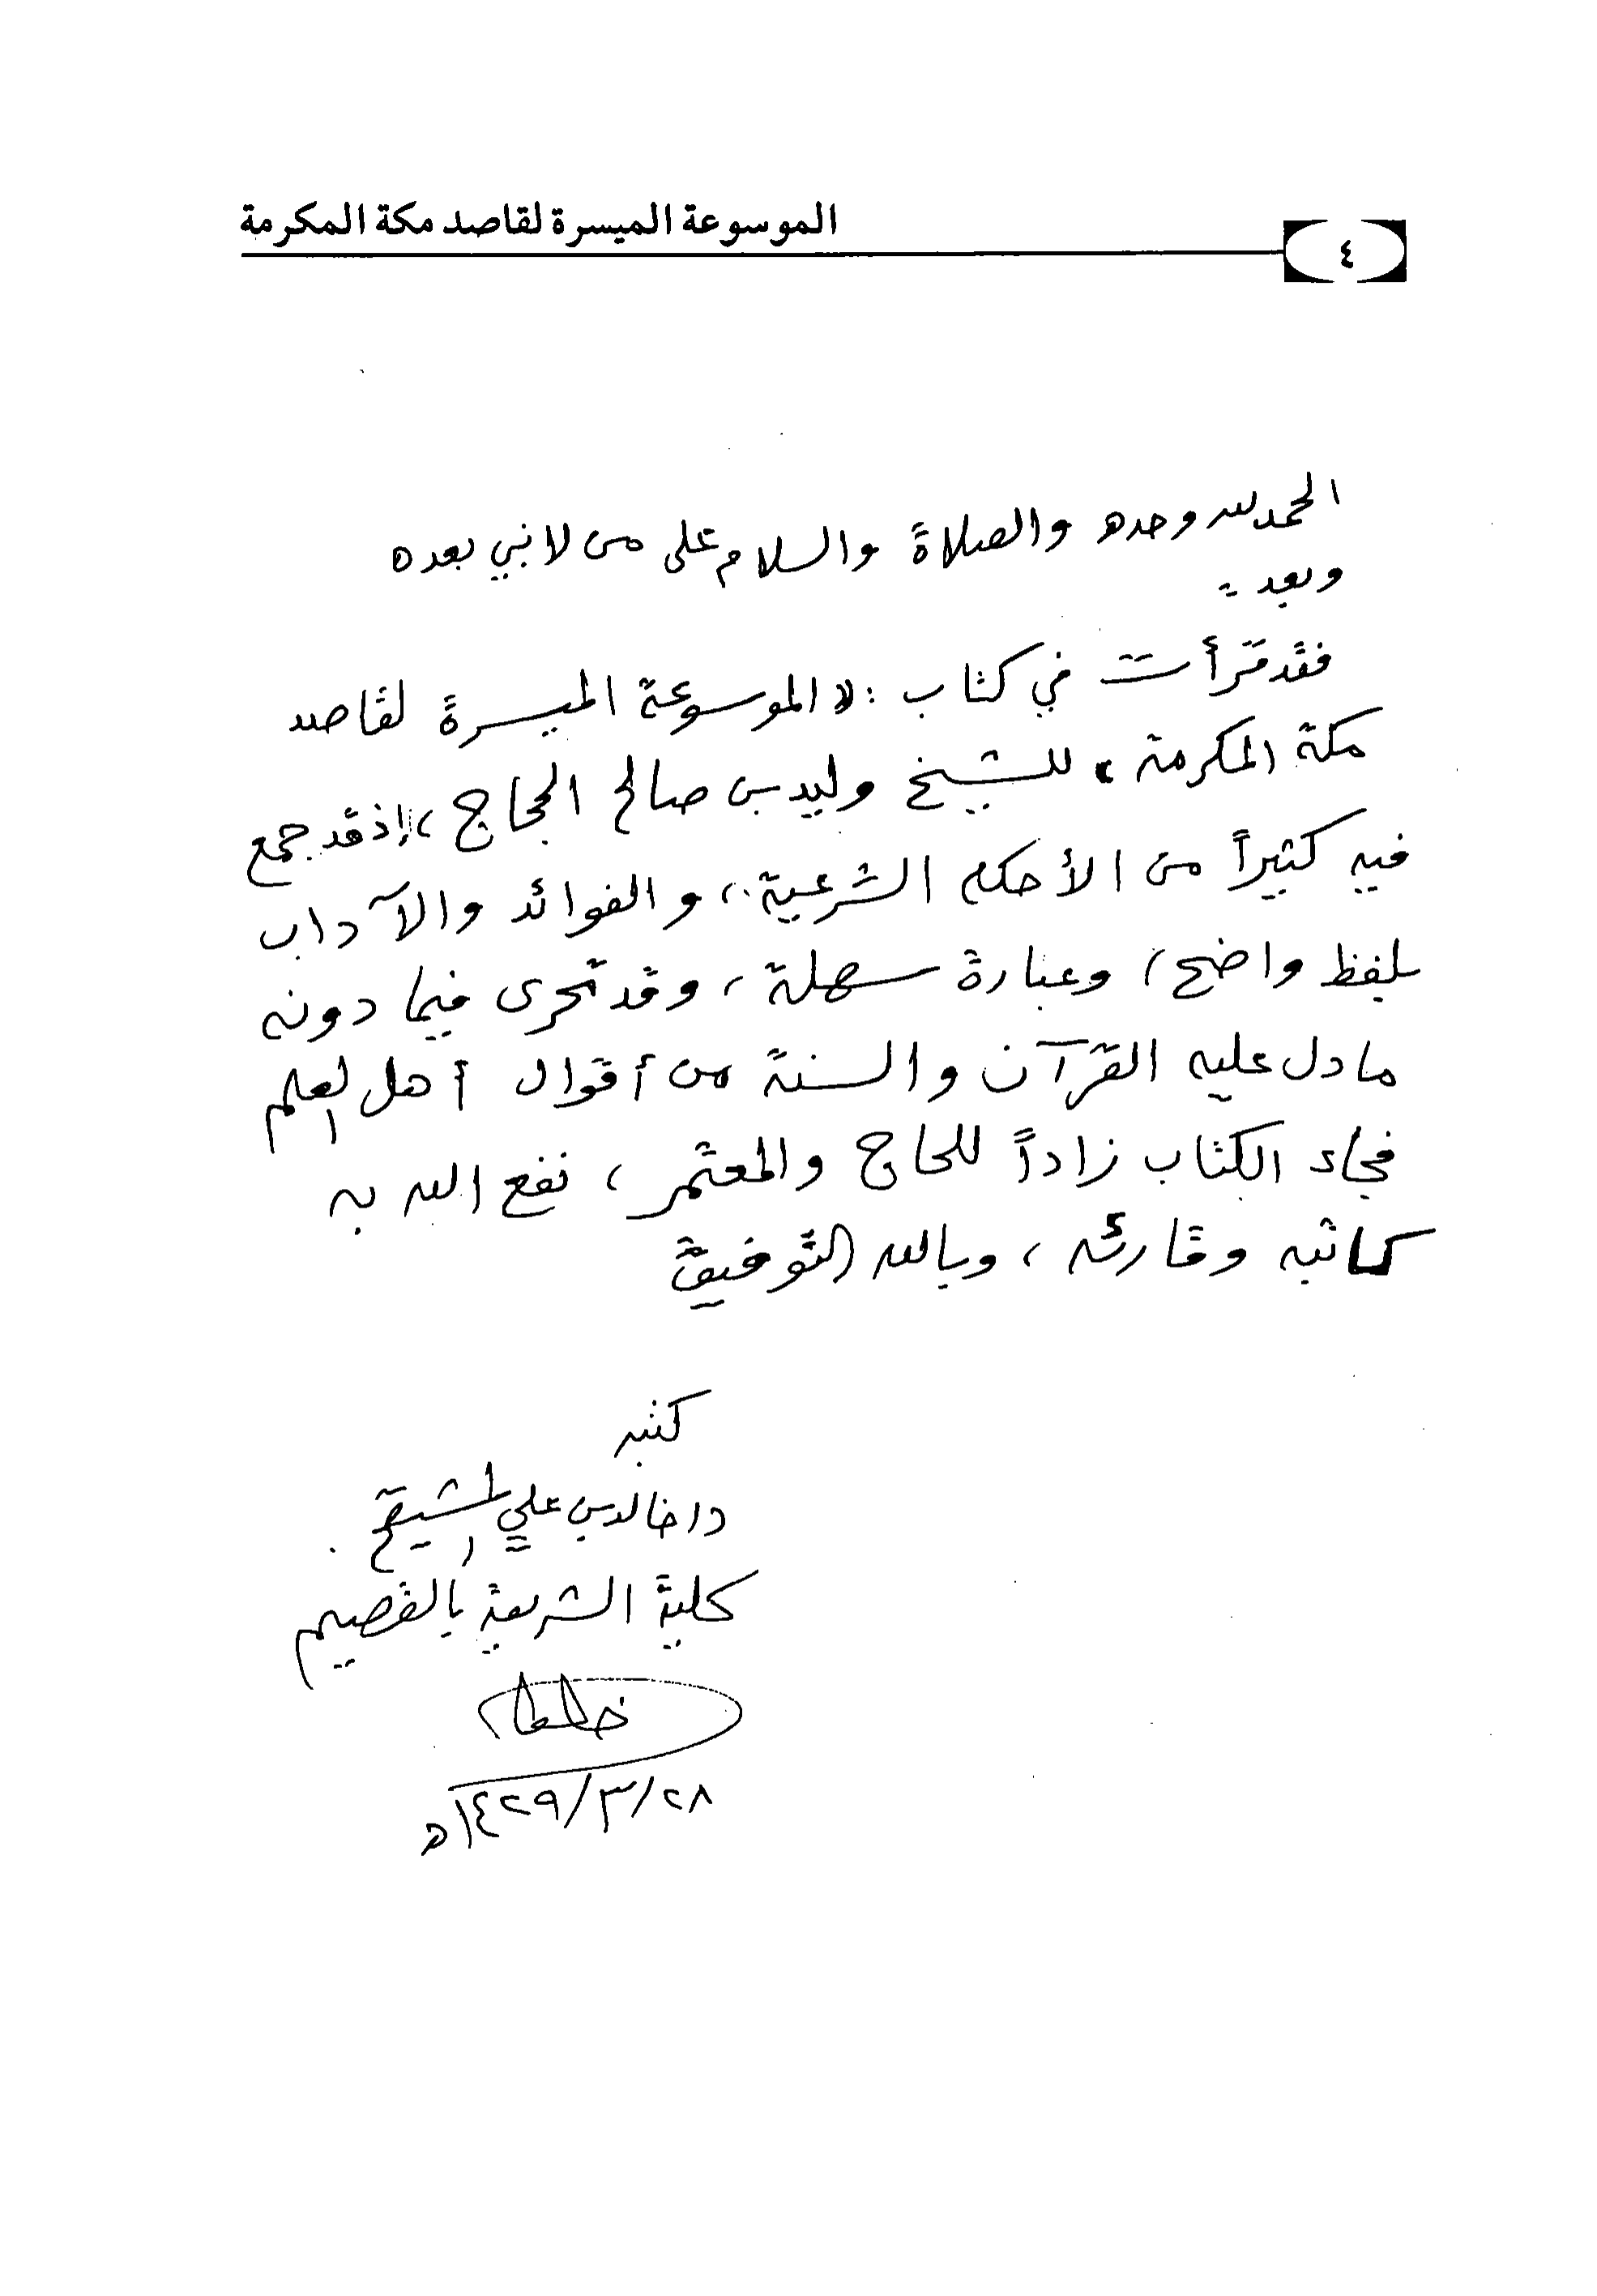 الموسوعة الميسرة لقاصد مكة المكرمة
٤
الحمد لله وحده والصلاة والسلام على من لا نبي بعده
وبعد :
فقد قرأت في كتاب : « الموسوعة الميسرة لقاصد
مكة المكرمة » للشيخ وليد بن صالح الحجاج ، إذ قد جمع
فيه كثيراً من الأحكام الشرعية ، والفوائد والآداب
بلفظ واضح ، وعبارة سهلة ، وقد تحرى فيما دونه
ما دل عليه القرآن والسنة من أقوال أهل العلم
فجاء الكتاب زاداً للحاج والمعتمر ، نفع الله به
كاتبه وقارئه ، وبالله التوفيق
كتبه
د / خالد بن علي المشيقح
كلية الشريعة بالقصيم
٢٨/٣/١٤٢٩هـ